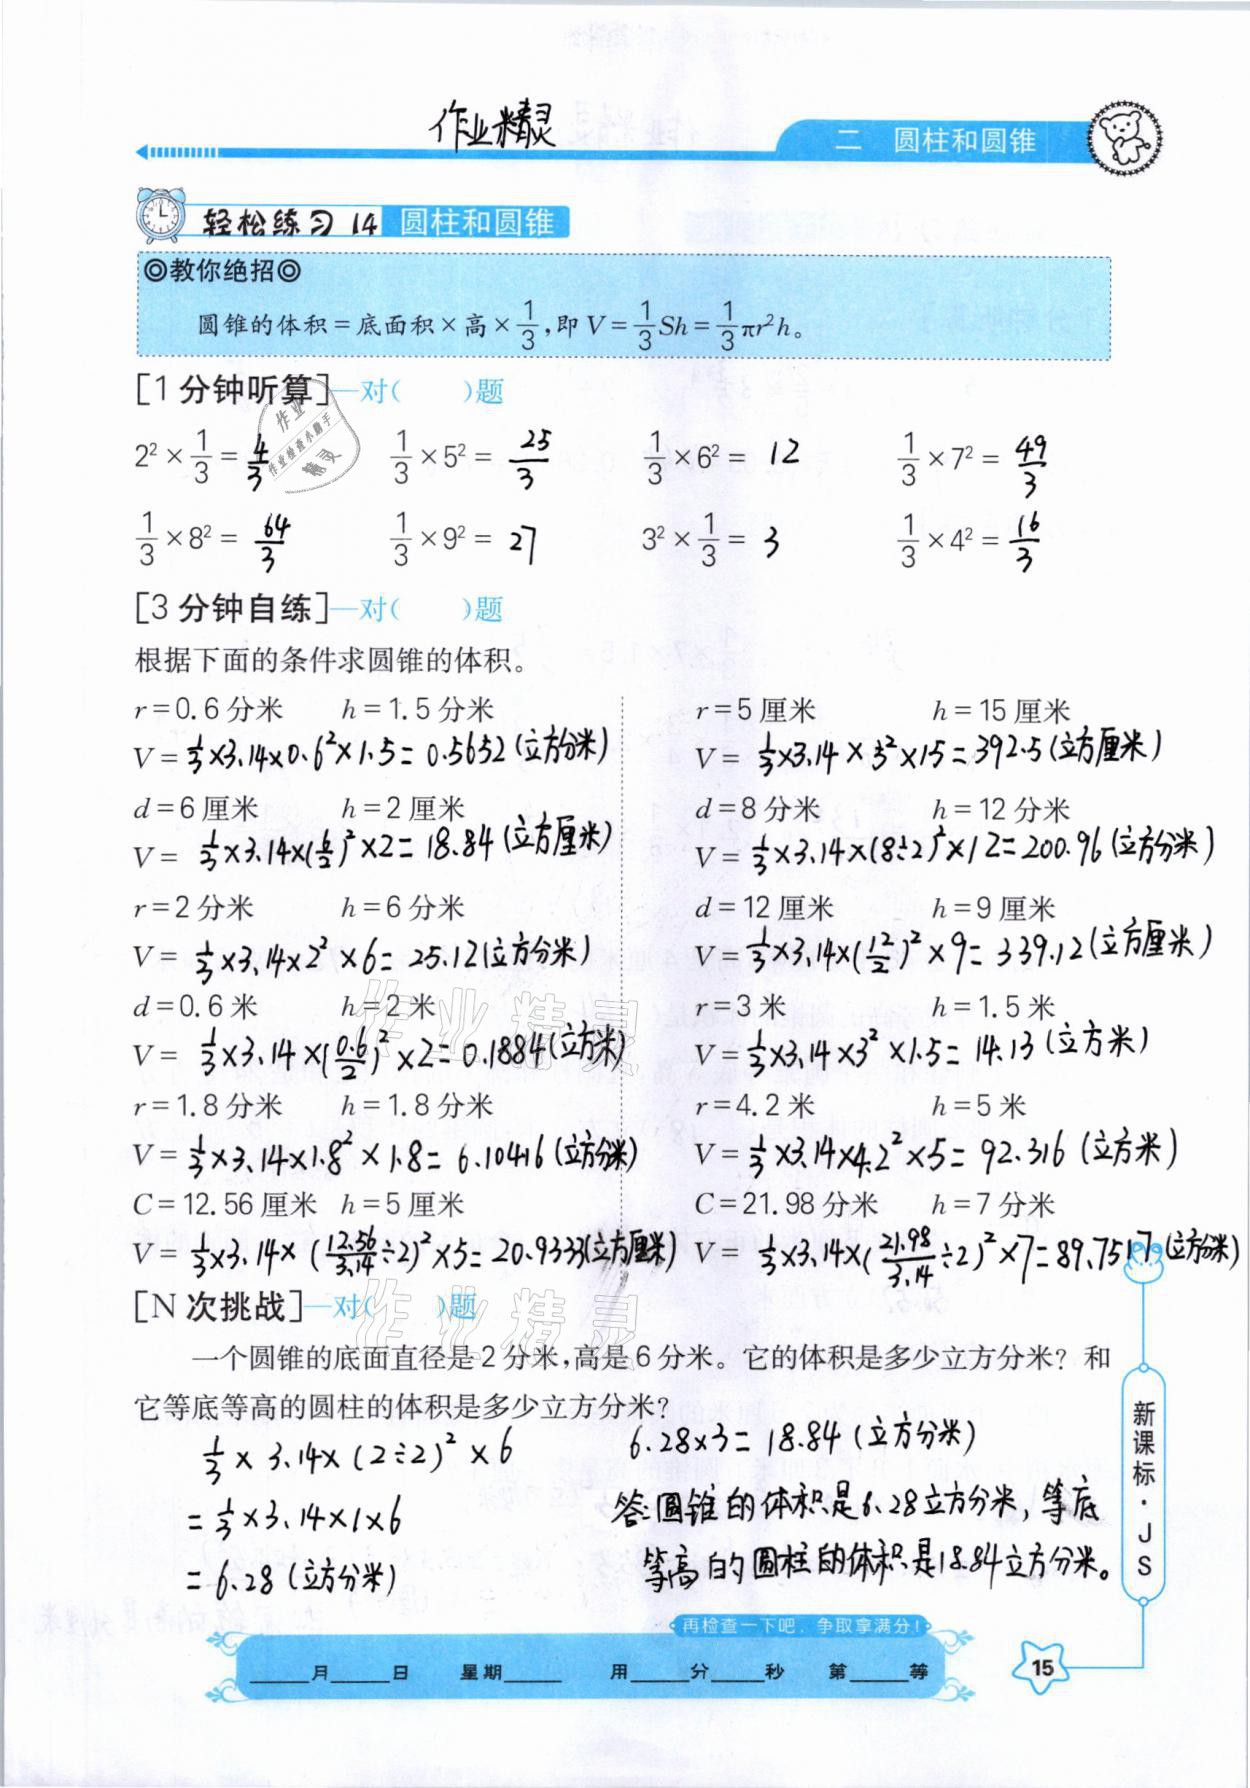 作业精灵
二 圆柱和圆锥
轻松练习 14 圆柱和圆锥
◎教你绝招◎
圆锥的体积=底面积×高×1/3,即V=1/3Sh=1/3πr²h。
[1分钟听算]—对(  )题
2²×1/3=4/3 1/3×5²=25/3 1/3×6²=12 1/3×7²=49/3
1/3×8²=64/3 1/3×9²=27 3²×1/3=3 1/3×4²=16/3
[3分钟自练]—对(  )题
根据下面的条件求圆锥的体积。
r=0.6分米 h=1.5分米 r=5厘米 h=15厘米
V=1/3×3.14×0.6²×1.5=0.5652(立方分米) V=1/3×3.14×5²×15=392.5(立方厘米)
d=6厘米 h=2厘米 d=8分米 h=12分米
V=1/3×3.14×(6/2)²×2=18.84(立方厘米) V=1/3×3.14×(8÷2)²×12=200.96(立方分米)
r=2分米 h=6分米 d=12厘米 h=9厘米
V=1/3×3.14×2²×6=25.12(立方分米) V=1/3×3.14×(12/2)²×9=339.12(立方厘米)
d=0.6米 h=2米 r=3米 h=1.5米
V=1/3×3.14×(0.6/2)²×2=0.1884(立方米) V=1/3×3.14×3²×1.5=14.13(立方米)
r=1.8分米 h=1.8分米 r=4.2米 h=5米
V=1/3×3.14×1.8²×1.8=6.10416(立方分米) V=1/3×3.14×4.2²×5=92.316(立方米)
C=12.56厘米 h=5厘米 C=21.98分米 h=7分米
V=1/3×3.14×(12.56/3.14÷2)²×5=20.9333(立方厘米) V=1/3×3.14×(21.98/3.14÷2)²×7=89.7517(立方分米)
[N次挑战]—对(  )题
一个圆锥的底面直径是2分米,高是6分米。它的体积是多少立方分米?和
它等底等高的圆柱的体积是多少立方分米?
1/3×3.14×(2÷2)²×6 6.28×3=18.84(立方分米)
=1/3×3.14×1×6 答:圆锥的体积是6.28立方分米,等底
=6.28(立方分米) 等高的圆柱的体积是18.84立方分米。
新课标·JS
再检查一下吧,争取拿满分!
____月____日 星期____ 用____分____秒 第____等
15
作业精灵
作业检查小助手
作业精灵
作业精灵